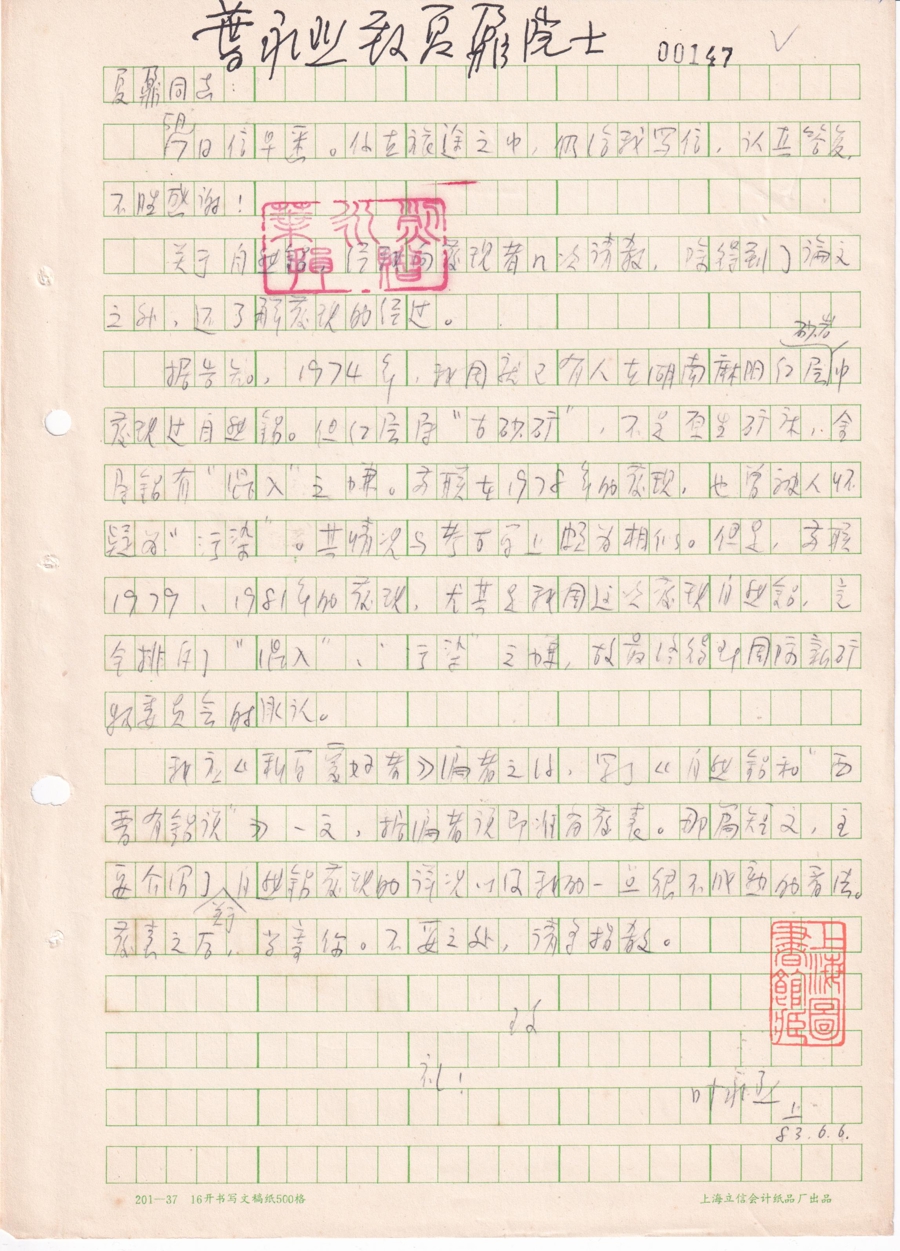 葉永烈致夏鼐院士
00147
夏鼐同志：
5月17日信早悉。你在旅途之中，仍给我写信，认真答复，
不胜感谢！
葉永烈
关于自然铝，经与发现者几次请教，除得到了论文
之外，还了解发现的经过。
砂岩
据告知，1974年，我国就已有人在湖南麻阳红层中
发现过自然铝。但红层属“古砂矿”，不是原生矿床，金
属铝有“混入”之嫌。苏联在1978年的发现，也曾被人怀
疑为“污染”。其情况与考古学上颇为相似。但是，苏联
1979、1981年的发现，尤其是我国这次发现自然铝，完
全排斥了“混入”、“污染”之嫌，故最终得到国际新矿
物委员会的承认。
我应《科学爱好者》编者之约，写了《自然铝和“西
晋有铝说”》一文，据编者说即准备发表。那属短文，主
要介绍了自然铝发现的详况以及我的一点很不成熟的看法。
发表之后，当寄你。不妥之处，请予指教。
上海圖書館藏
致
礼！
叶永烈上
83.6.6.
201—37 16开书写文稿纸500格
上海立信会计纸品厂出品